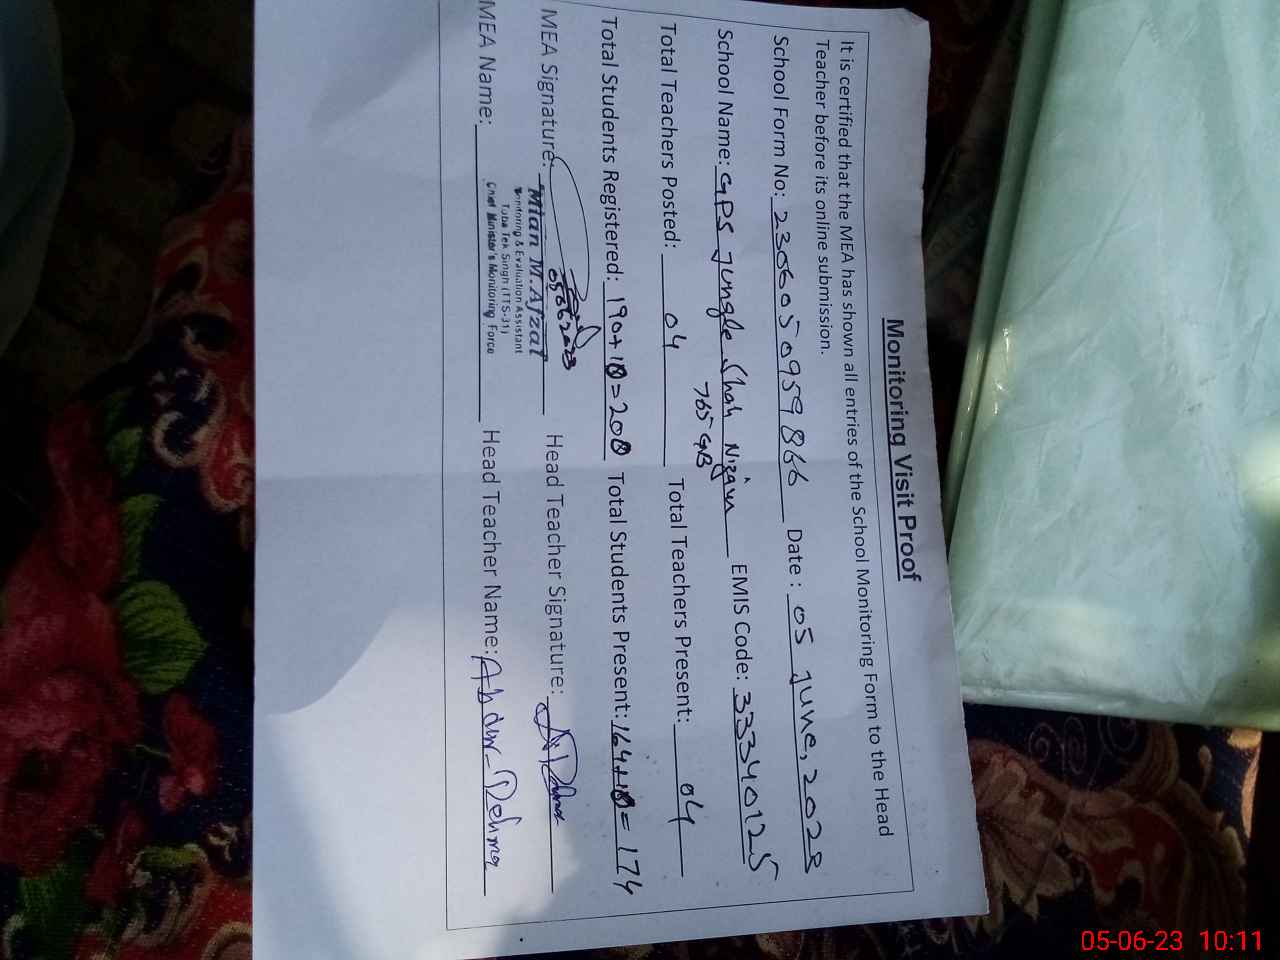 Monitoring Visit Proof
It is certified that the MEA has shown all entries of the School Monitoring Form to the Head
Teacher before its online submission.
School Form No: 2306050959866 Date : 05 June, 2023
School Name: GPS Jungle Shah Nizam EMIS Code: 33340125
765 GB
Total Teachers Posted: 04 Total Teachers Present: 04
Total Students Registered: 190+10=200 Total Students Present: 164+10=174
MEA Signature: Head Teacher Signature:
05062023
Mian M.Afzal
Monitoring & Evaluation Assistant
Toba Tek Singh (TTS-31)
Chief Minister's Monitoring Force
MEA Name: Head Teacher Name: Abdur-Rehman
05-06-23 10:11